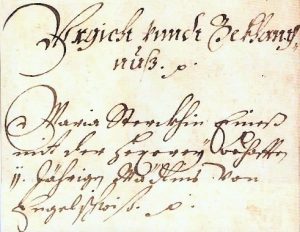 Urgich unnd Bekhant
nuß.
Maria Sterckhin Eineß
mit der Hexereÿ Behafften
11. Jährigen Mädlins von
Engelschwis.